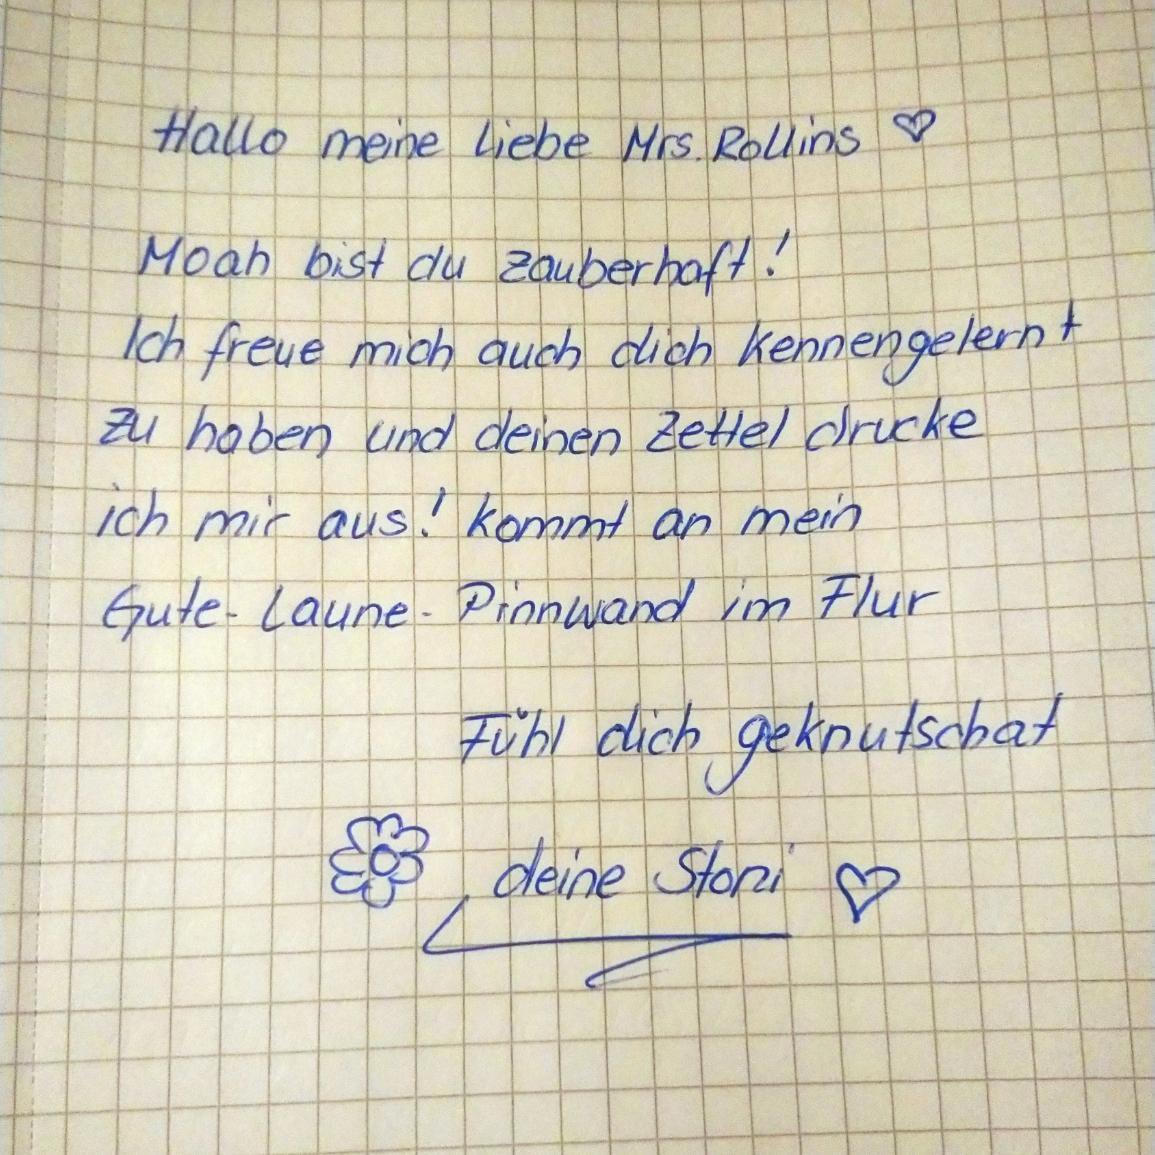 Hallo meine liebe Mrs. Rollins ♡
Moah bist du zauberhaft!
Ich freue mich auch dich kennengelernt
zu haben und deinen Zettel drucke
ich mir aus! kommt an mein
Gute-Laune-Pinnwand im Flur
Fühl dich geknutschat
deine Stoni ♡